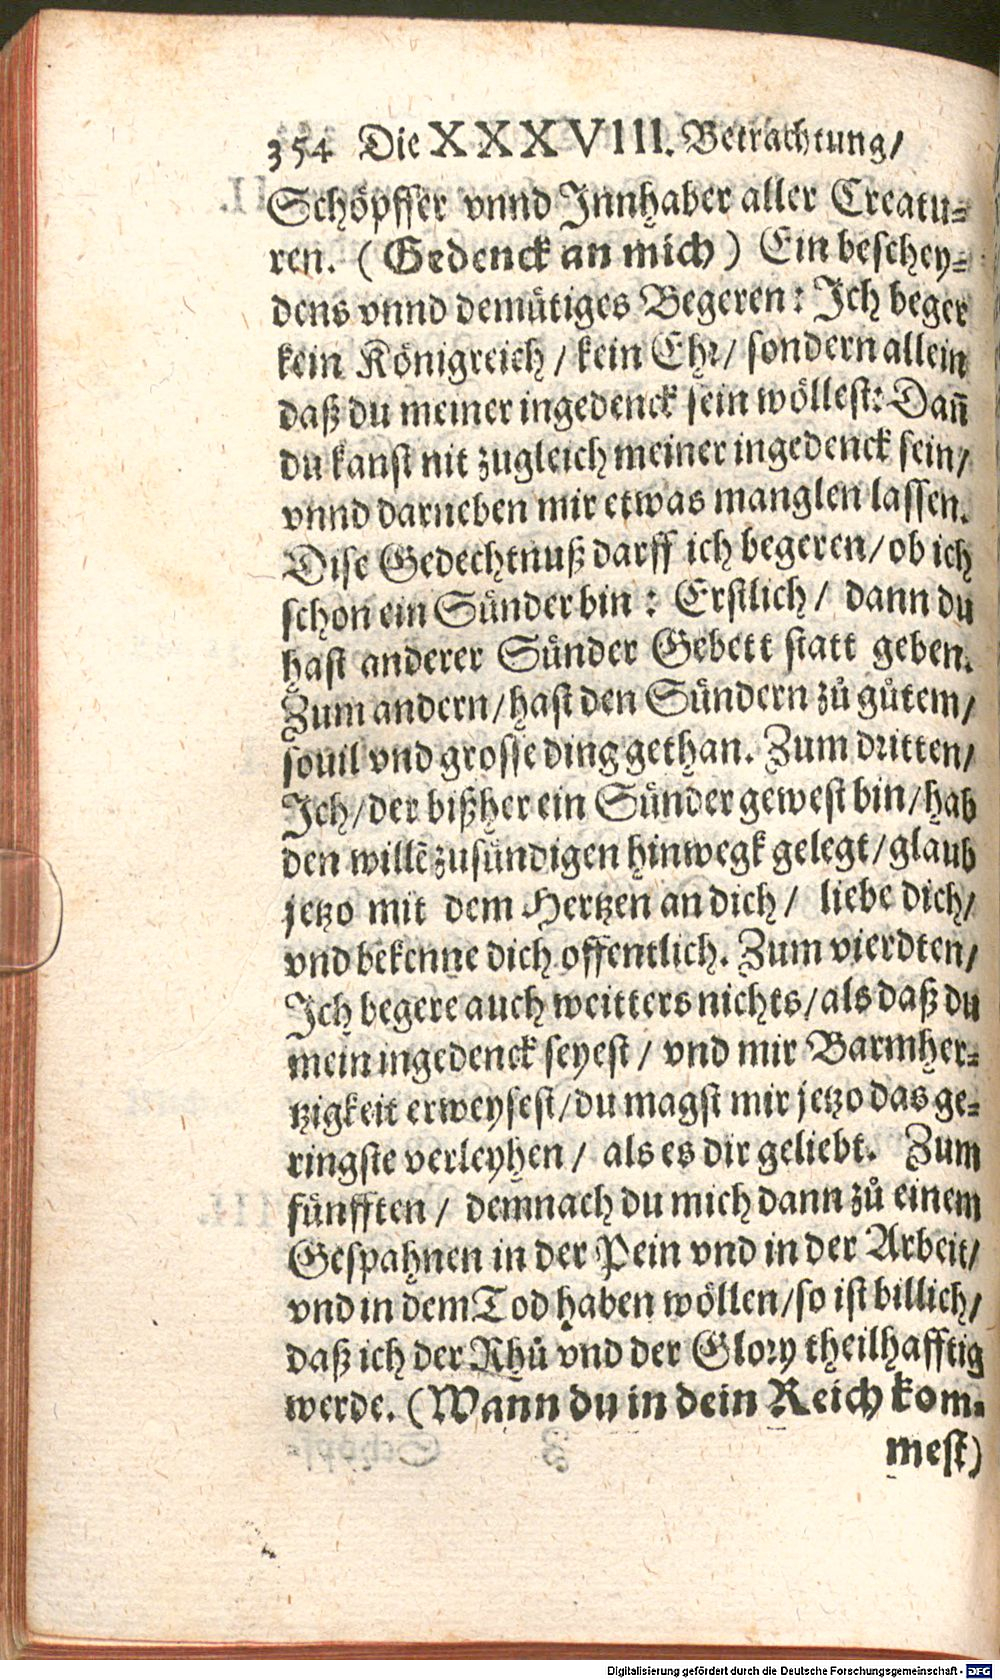 354 Die XXXVIII. Betrachtung/
Schöpffer vnnd Innhaber aller Creatu⸗
ren. (Gedenck an mich) Ein beschey⸗
dens vnnd demütiges Begeren: Ich beger
kein Königreich / kein Ehr / sondern allein
daß du meiner ingedenck sein wöllest: Dañ
du kanst nit zugleich meiner ingedenck sein/
vnnd darneben mir etwas manglen lassen.
Dise Gedechtnuß darff ich begeren/ob ich
schon ein Sünder bin : Erstlich / dann du
hast anderer Sünder Gebett statt geben.
Zum andern/hast den Sündern zů gůtem/
souil vnd grosse ding gethan. Zum dritten/
Ich/der bißher ein Sünder gewest bin/hab
den willẽ zusündigen hinwegk gelegt/glaub
jetzo mit dem Hertzen an dich / liebe dich/
vnd bekenne dich offentlich. Zum vierdten/
Ich begere auch weitters nichts/als daß du
mein ingedenck seyest / vnd mir Barmher⸗
tzigkeit erweysest/du magst mir jetzo das ge⸗
ringste verleyhen / als es dir geliebt. Zum
fünfften / demnach du mich dann zů einem
Gespahnen in der Pein vnd in der Arbeit/
vnd in dem Tod haben wöllen/so ist billich/
daß ich der Rhů vnd der Glory theilhafftig
werde. (Wann du in dein Reich kom⸗
mest)
Digitalisierung gefördert durch die Deutsche Forschungsgemeinschaft - DFG